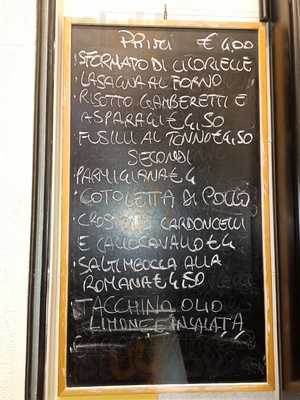 PRIMI € 4,00
· SFORMATO DI CICORIELLE
· LASAGNA AL FORNO
· RISOTTO GAMBERETTI E
ASPARAGI € 4,50
· FUSILLI AL TONNO € 4,50
SECONDI
PARMIGIANA € 4
· COTOLETTA DI POLLO
· CROSTONE CARDONCELLI
E CACIOCAVALLO € 4
· SALTIMBOCCA ALLA
ROMANA € 4,50
· TACCHINO OLIO
LIMONE E INSALATA